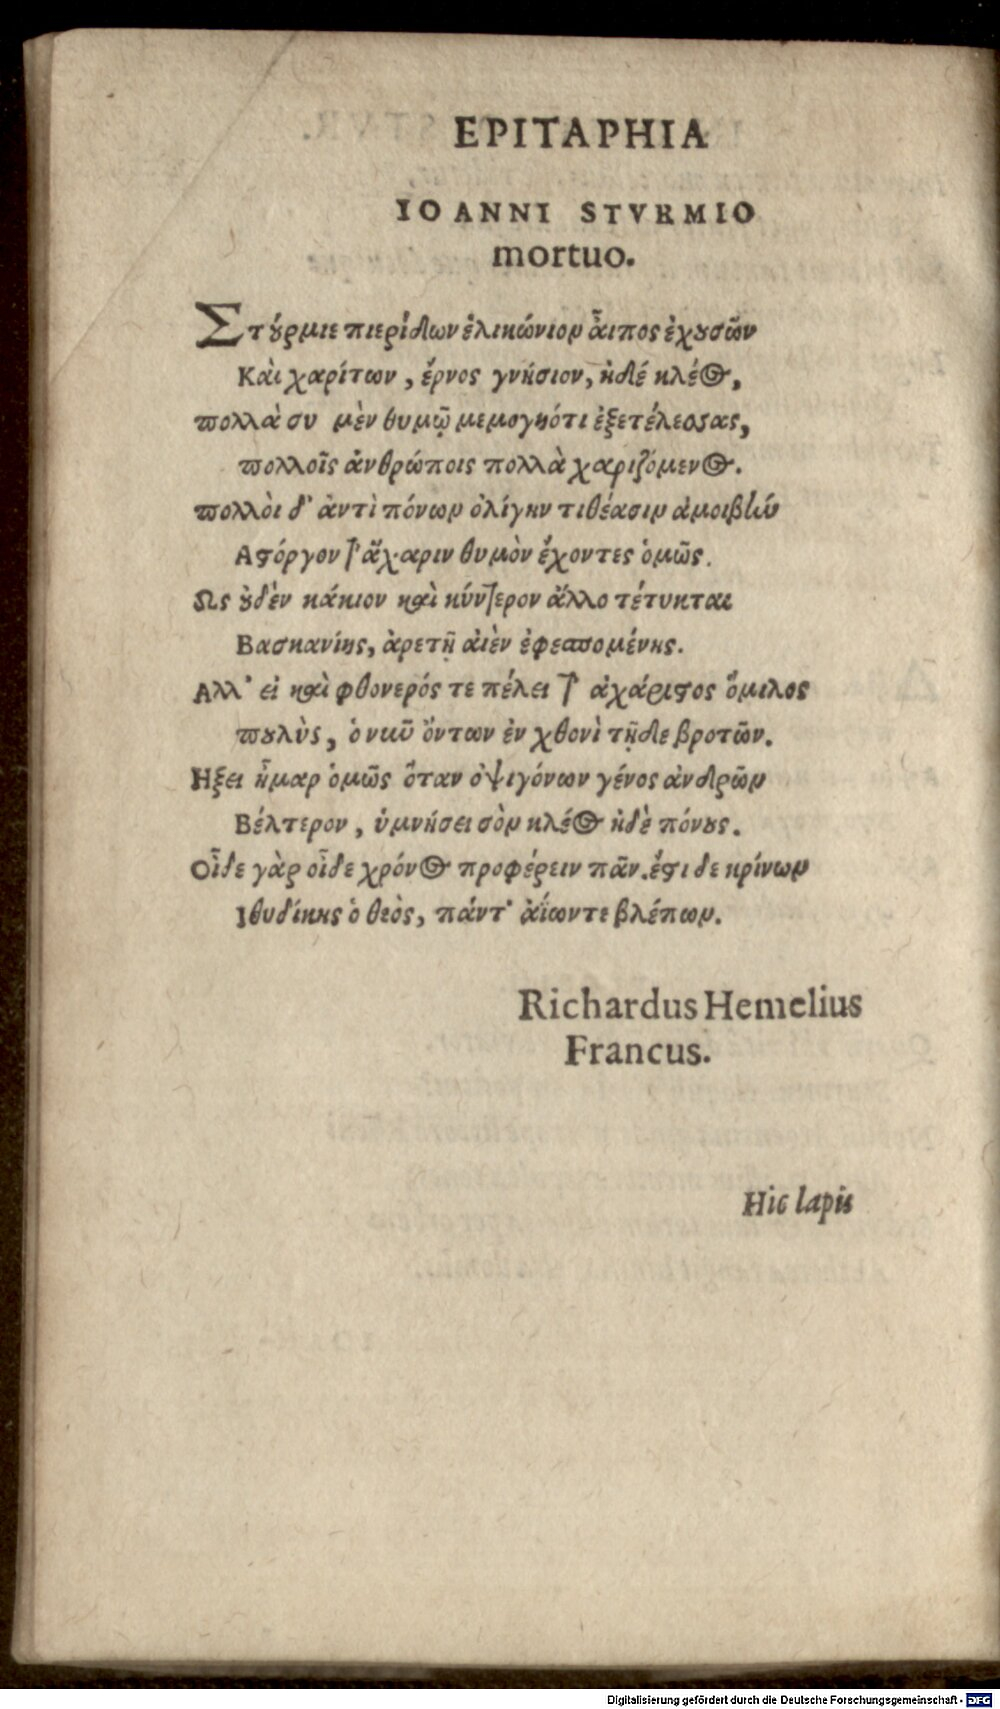 EPITAPHIA
IOANNI STVRMIO
mortuo.
Στȣ́ρμιε πιερίδων ἑλικώνιον ἆιπος ἐχȣσῶν
Κὰι χαρίτων, ἔρνος γνήσιον, ἠδέ κλέος,
πολλὰ συ μὲν θυμῷ μεμογηότι ἐξετέλεσσας,
πολλοῖς ἀνθρώποις πολλὰ χαριζόμενος.
πολλὸι δ' ἀντὶ πόνων ὀλίγην τιθέασιν ἀμοιβὴν
Αϛόργον τ' ἄχαριν θυμὸν ἔχοντες ὁμῶς.
Ως ȣδὲν κάκιον καὶ κύντερον ἄλλο τέτυκται
Βασκανίης, ἀρετῇ ἀιὲν ἐφεσπομένης.
Αλλ' εἰ καὶ φθονερός τε πέλει τ' ἀχάριϛος ὅμιλος
πȣλὺς, ὁ νιῦ ὄντων ἐν χθονὶ τῇδε βροτῶν.
Ηξει ἦμαρ ὁμῶς ὅταν ὀψιγόνων γένος ἀνδρῶν
Βέλτερον, ὑμνήσει σὸν κλέος ἠδὲ πόνȣς.
Οἶδε γὰρ οἶδε χρόνος προφέρειν πᾶν. ἔϛι δε κρίνων
Ιθυδίκης ὁ θεὸς, πάντ' ἀίωντε βλέπων.
Richardus Hemelius
Francus.
Hic lapis
Digitalisierung gefördert durch die Deutsche Forschungsgemeinschaft - DFG